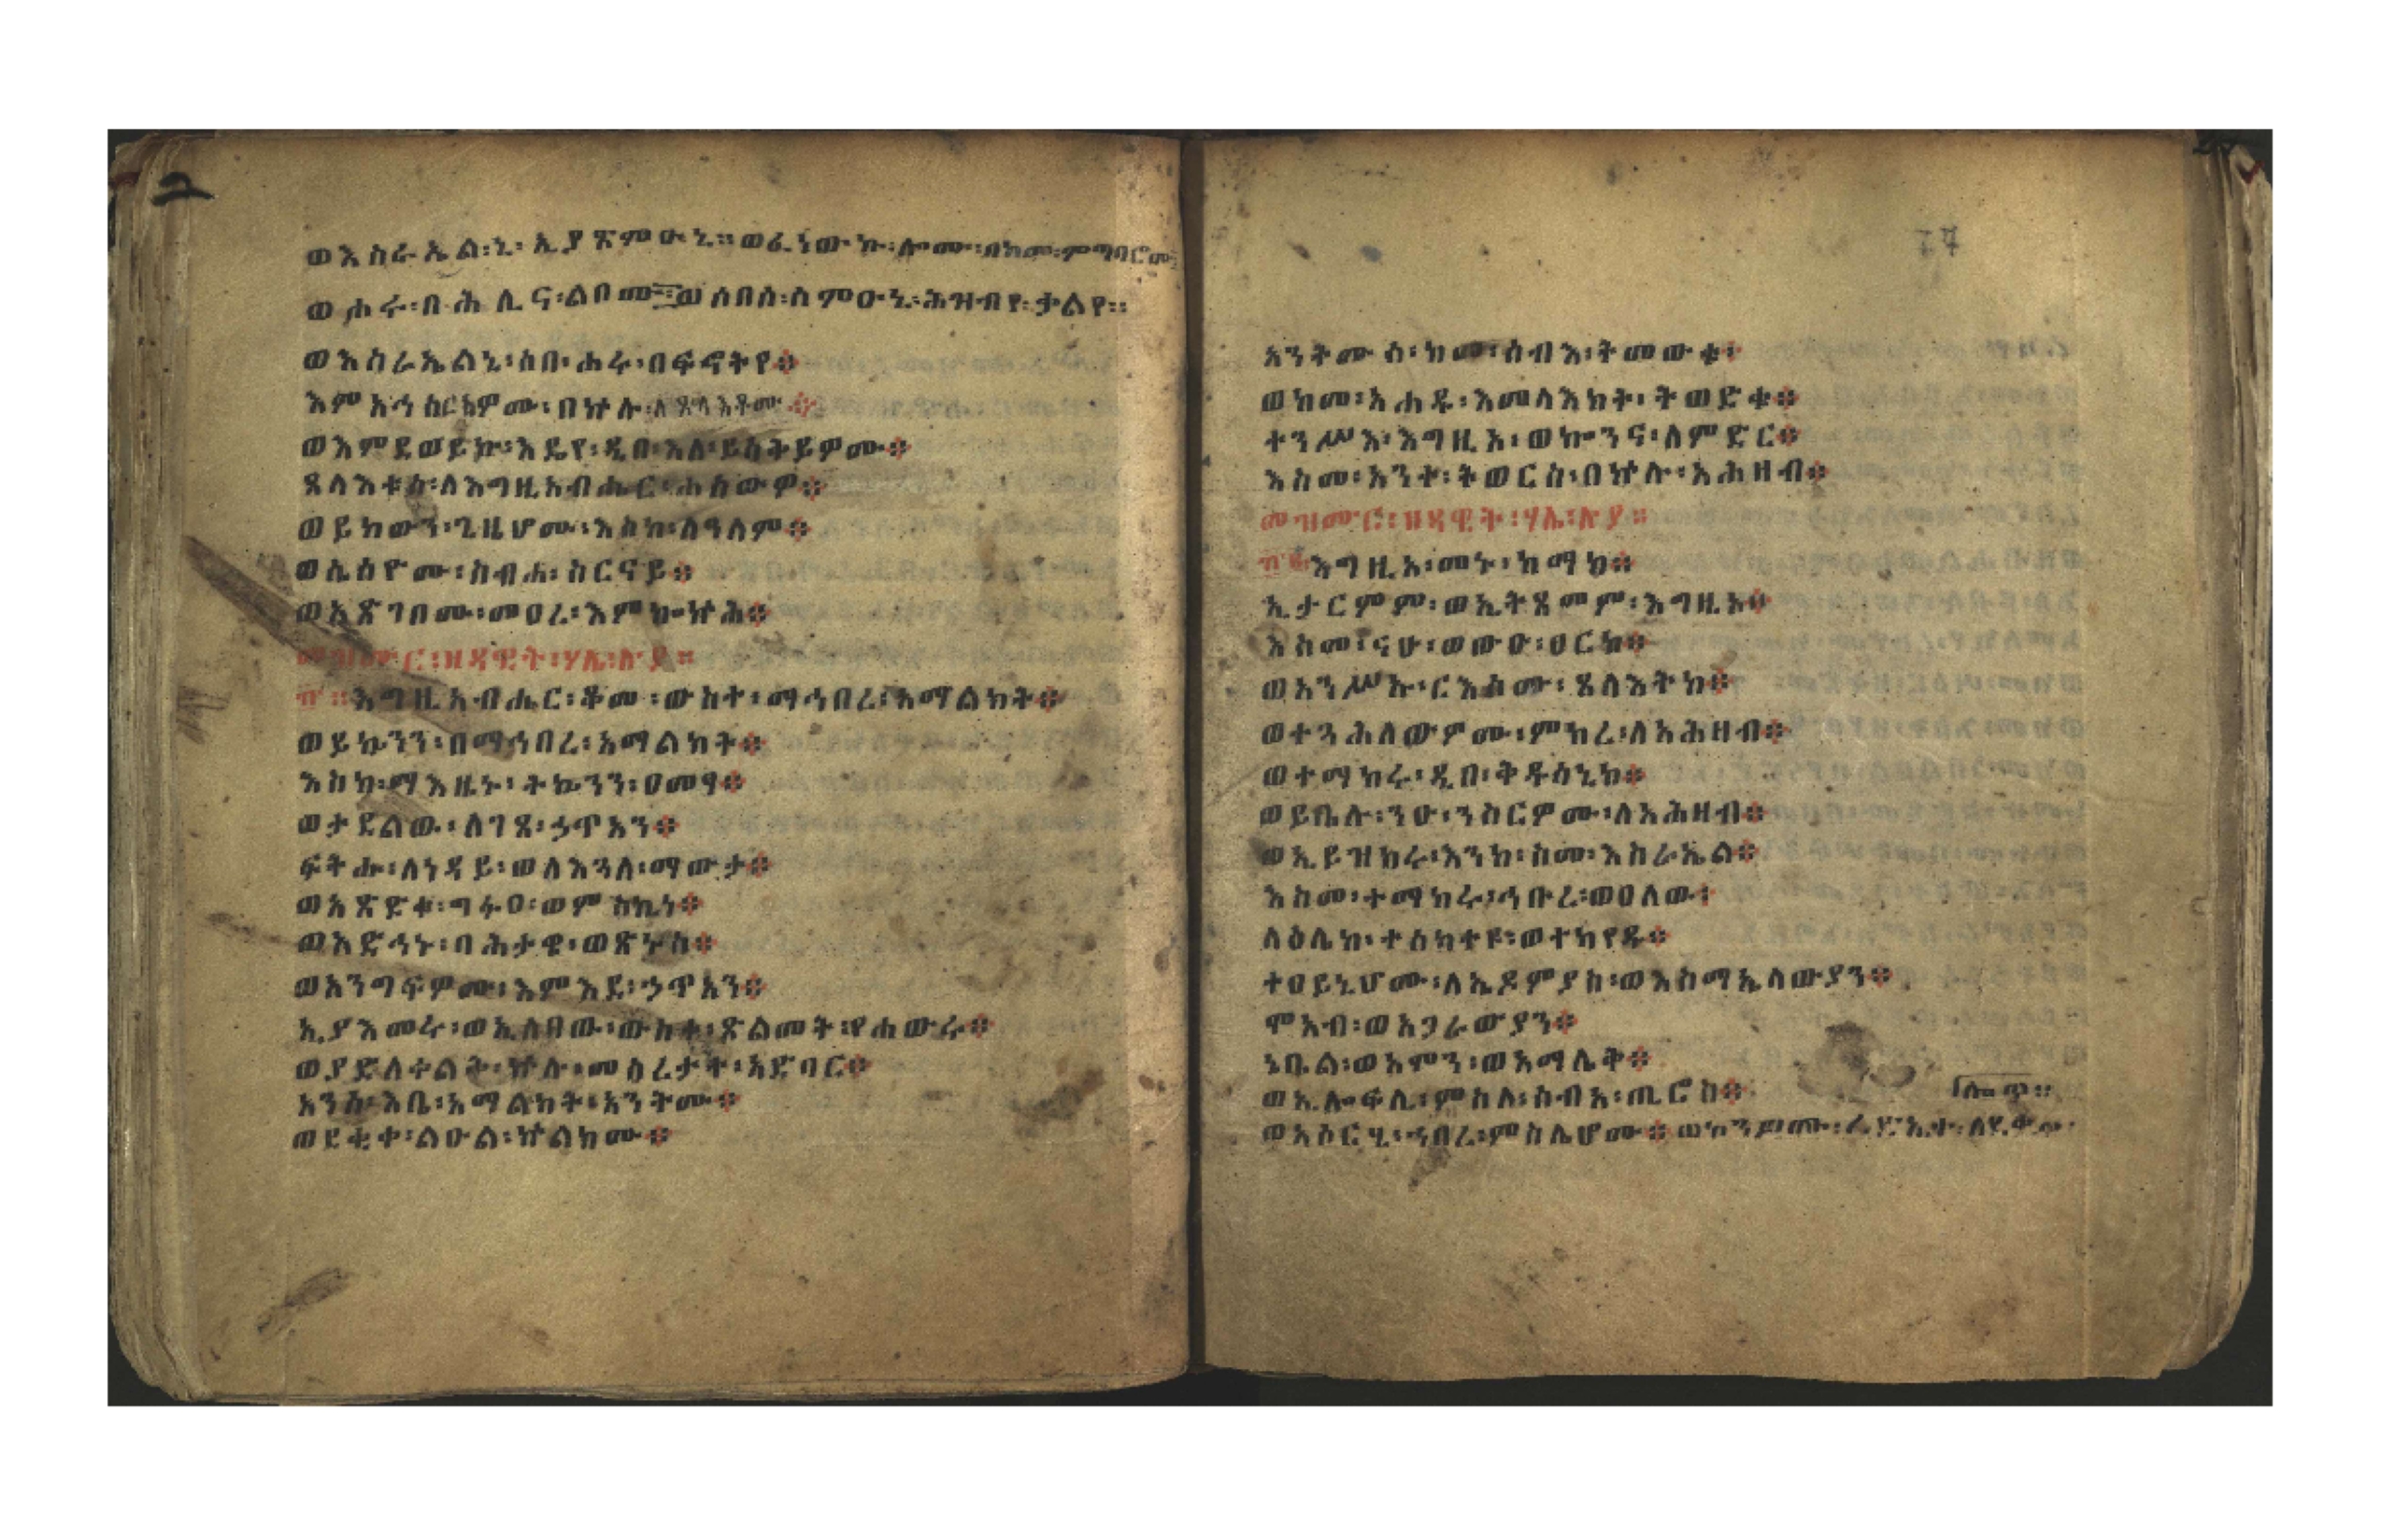 ወእስራኤል፡ኒ፡ኢያጽምዑኒ። ወፈነውኩ፡ሎሙ፡በከመ፡ምግባሮሙ፡
ወሐሩ፡በሕሊና፡ልቦሙ። ወሶበሰ፡ስምዑኒ፡ሕዝብየ፡
ወእስራኤልኒ፡ሶበ፡ሐሩ፡በፍኖትየ።
እምአኅሰርክዎሙ፡በኵሉ፡ለጸላእቶሙ።
ወእምደወይኩ፡እዴየ፡ዲበ፡እለ፡ይሣቅይዎሙ።
ጸላእቱሰ፡ለእግዚአብሔር፡ሐሰውዎ።
ወይከውን፡ጊዜሆሙ፡እስከ፡ለዓለም።
ወሴሰዮሙ፡ስብሐ፡ስርናይ።
ወአጽገቦሙ፡መዐረ፡እምኰኵሕ።
መዝሙር፡ዘዳዊት፡ሃሌ፡ሉያ።
እግዚአብሔር፡ቆመ፡ውስተ፡ማኅበረ፡አማልክት።
ወይኴንን፡በማኅበረ፡አማልክት።
እስከ፡ማእዜኑ፡ትኴንኑ፡ዐመፃ።
ወታደልው፡ለገጸ፡ኃጥአን።
ፍትሑ፡ለነዳይ፡ወለእጓለ፡ማውታ።
ወአጽድቁ፡ግፉዐ፡ወምስኪነ።
ወአድኅኑ፡ባሕታዌ፡ወጽኑስ።
ወአንግፍዎሙ፡እምእደ፡ኃጥአን።
ኢያእመሩ፡ወኢለበው፡ውስተ፡ጽልመት፡የሐውሩ።
ወያድለቀልቅ፡ኵሉ፡መሰረታተ፡አድባር።
አንሰ፡እቤ፡አማልክት፡አንትሙ።
ወደቂቀ፡ልዑል፡ኵልክሙ።
አንትሙሰ፡ከመ፡ሰብእ፡ትመውቱ፡
ወከመ፡አሐዱ፡እመላእክት፡ትወድቁ።
ተንሥእ፡እግዚአ፡ወኰንና፡ለምድር።
እስመ፡አንተ፡ትወርስ፡በኵሉ፡አሕዛብ።
መዝሙር፡ዘዳዊት፡ሃሌ፡ሉያ።
እግዚአ፡መኑ፡ከማከ።
ኢታርምም፡ወኢትጸመም፡እግዚአ።
እስመ፡ናሁ፡ወውዑ፡ፀርከ።
ወአንሥኡ፡ርእሶሙ፡ጸላእትከ።
ወተጓሕለውዎሙ፡ምክረ፡ለአሕዛብ።
ወተማከሩ፡ዲበ፡ቅዱሳኒከ።
ወይቤሉ፡ንዑ፡ንስርዎሙ፡ለአሕዛብ።
ወኢይዝክሩ፡እንከ፡ስመ፡እስራኤል።
እስመ፡ተማከሩ፡ኅቡረ፡ወዐለው፡
ላዕሌከ፡ተሰካተዩ፡ወተካየዱ።
ተዐይኒሆሙ፡ለኤዶምያስ፡ወእስማኤላውያን።
ሞአብ፡ወአጋራውያን።
ጌቤል፡ወአሞን፡ወአማሌቅ።
ወኢሎፍሊ፡ምስለ፡ሰብአ፡ጢሮስ። ሎጥ።
ወአሶርሂ፡ኀበረ፡ምስሌሆሙ። ወኮንዎሙ፡ረድኤተ፡ለደቂቀ፡